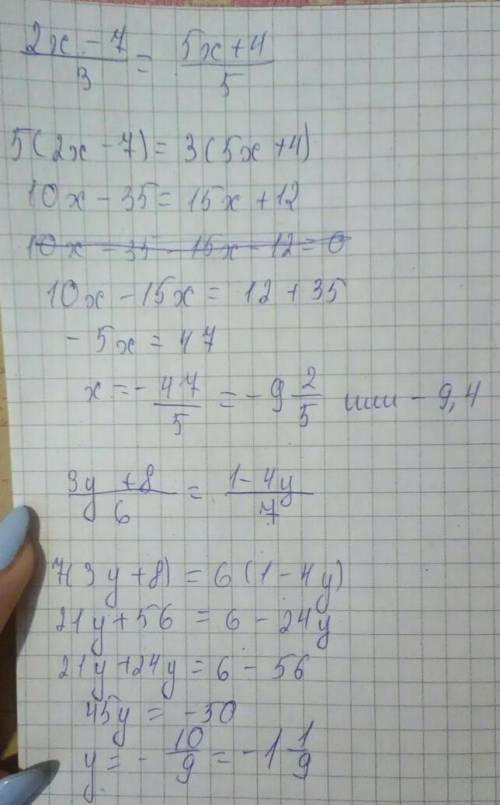 (2x - 7)/3 = (5x + 4)/5
5(2x - 7) = 3(5x + 4)
10x - 35 = 15x + 12
10x - 35 - 15x - 12 = 0
10x - 15x = 12 + 35
- 5x = 47
x = - 47/5 = - 9 2/5 или - 9,4
(3y + 8)/6 = (1 - 4y)/7
7(3y + 8) = 6(1 - 4y)
21y + 56 = 6 - 24y
21y + 24y = 6 - 56
45y = - 50
y = - 10/9 = - 1 1/9